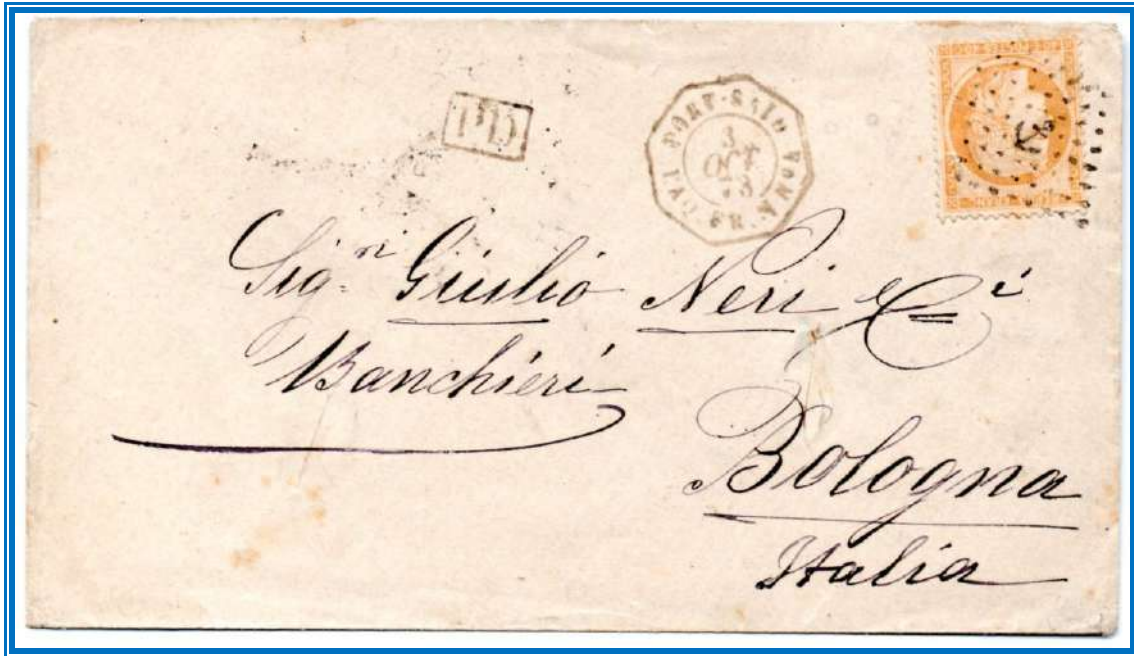 PD
PORT-SAID
3
OCT
73
PAQ. FR.
Sigri Giulio Neri & Ci
Banchieri
Bologna
Italia